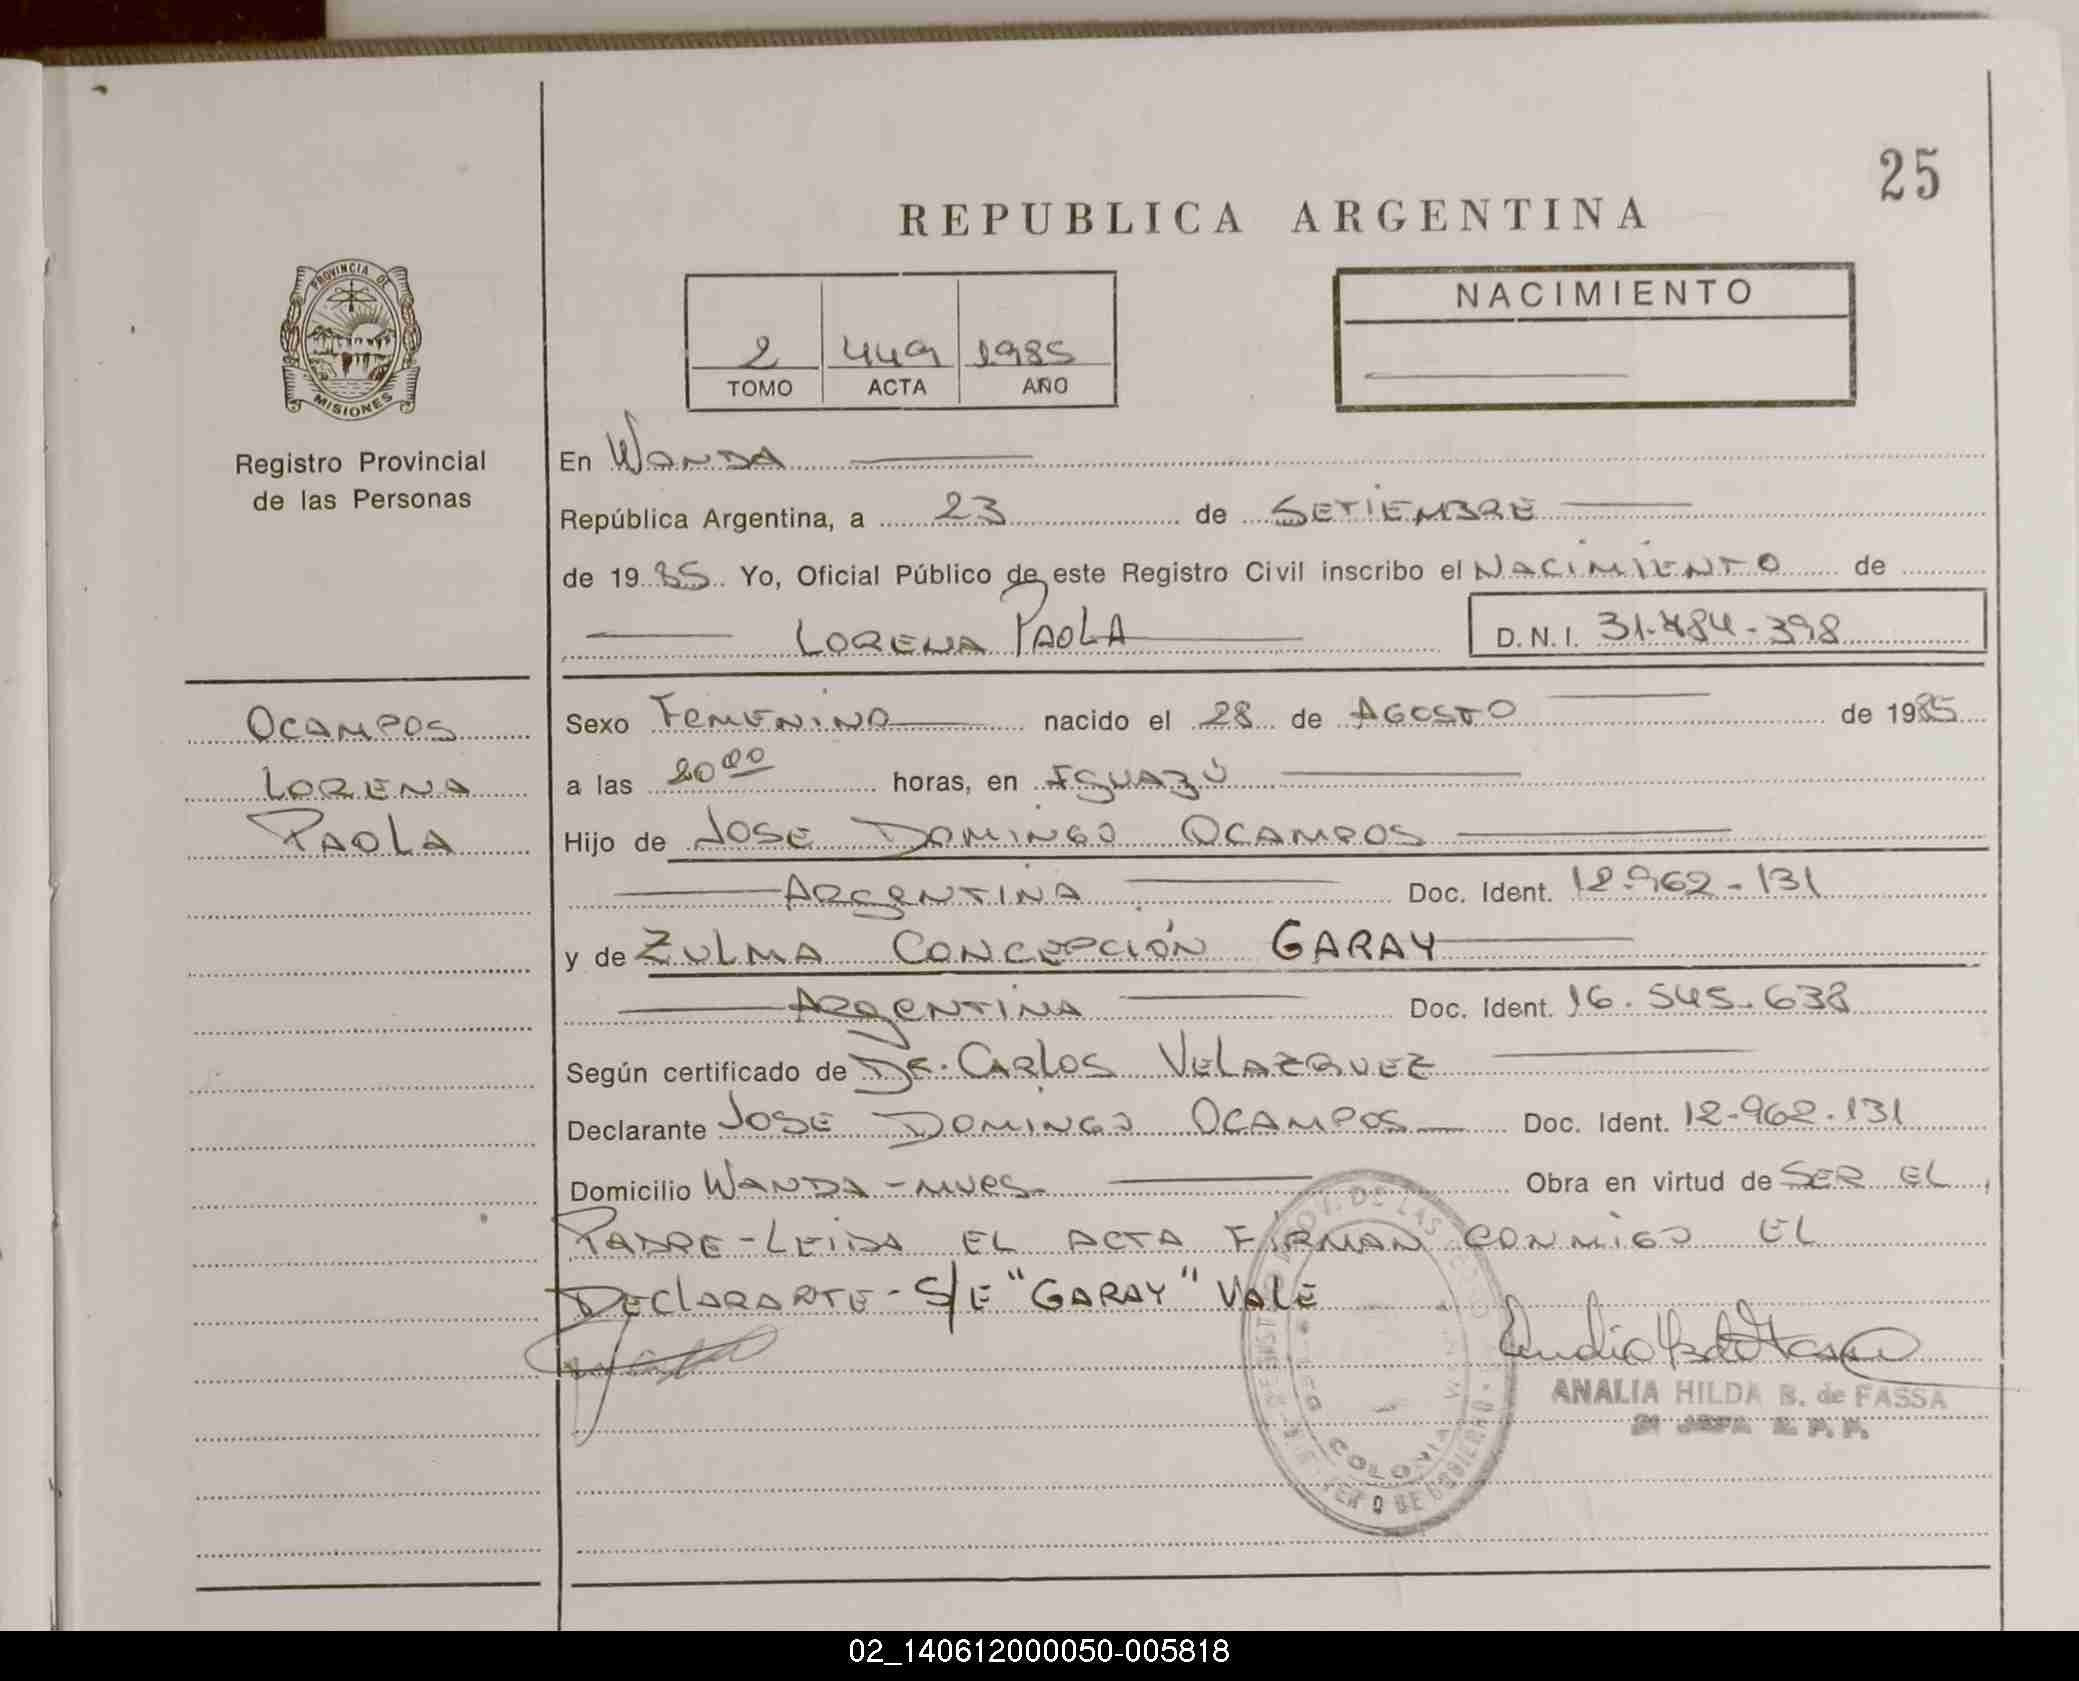 25
REPUBLICA ARGENTINA
PROVINCIA DE
MISIONES
Registro Provincial
de las Personas
2 449 1985
TOMO ACTA AÑO
NACIMIENTO
En WANDA
República Argentina, a 23 de SETIEMBRE
de 1985 Yo, Oficial Público de este Registro Civil inscribo el NACIMIENTO de
LORENA PAOLA D.N.I. 31.484-398
OCAMPOS
LORENA
PAOLA
Sexo FEMENINO nacido el 28 de AGOSTO de 1985
a las 20 00 horas, en IGUAZÚ
Hijo de JOSE DOMINGO OCAMPOS
ARGENTINA Doc. Ident. 12.962-131
y de ZULMA CONCEPCIÓN GARAY
ARGENTINA Doc. Ident. 16.545.638
Según certificado de DR. CARLOS VELAZQUEZ
Declarante JOSE DOMINGO OCAMPOS Doc. Ident. 12-962-131
Domicilio WANDA - MNES Obra en virtud de SER EL
PADRE - LEIDA EL ACTA FIRMAN CONMIGO EL
DECLARARTE - S/E "GARAY" VALE
ANALIA HILDA B. de FASSA
COLONIA WANDA
02_140612000050-005818